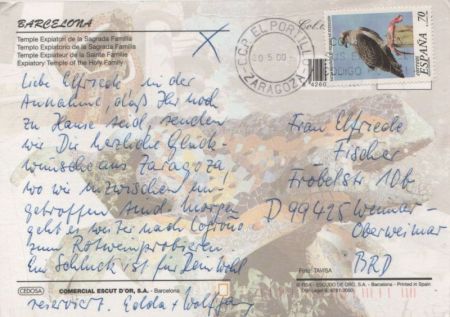 BARCELONA
Temple Expiatori de la Sagrada Família
Templo Expiatorio de la Sagrada Familia
Temple Expiatoire de la Sainte Famille
Expiatory Temple of the Holy Family
C.C.P. EL PORTILLO
ZARAGOZA
ESPAÑA 70
Liebe Elfriede, in der
Annahme, daß Ihr noch
zu Hause seid, senden
wir Die herzliche Glück-
wünsche aus Zaragoza,
wo wir inzwischen ein-
getroffen sind. Morgen
geht es weiter nach Logrono
zum Rotweinprobieren.
Ein Schluck ist für Dein Wohl
reserviert. Edda + Wolfgang
Frau Elfriede
Fischer
Fröbelstr 10b
D 99425 Weimar-
Oberweimar
BRD
Foto: TAVISA
CEDOSA
COMERCIAL ESCUT D'OR, S.A. - Barcelona
ESCUDO DE ORO, S.A. - Barcelona - Printed in Spain